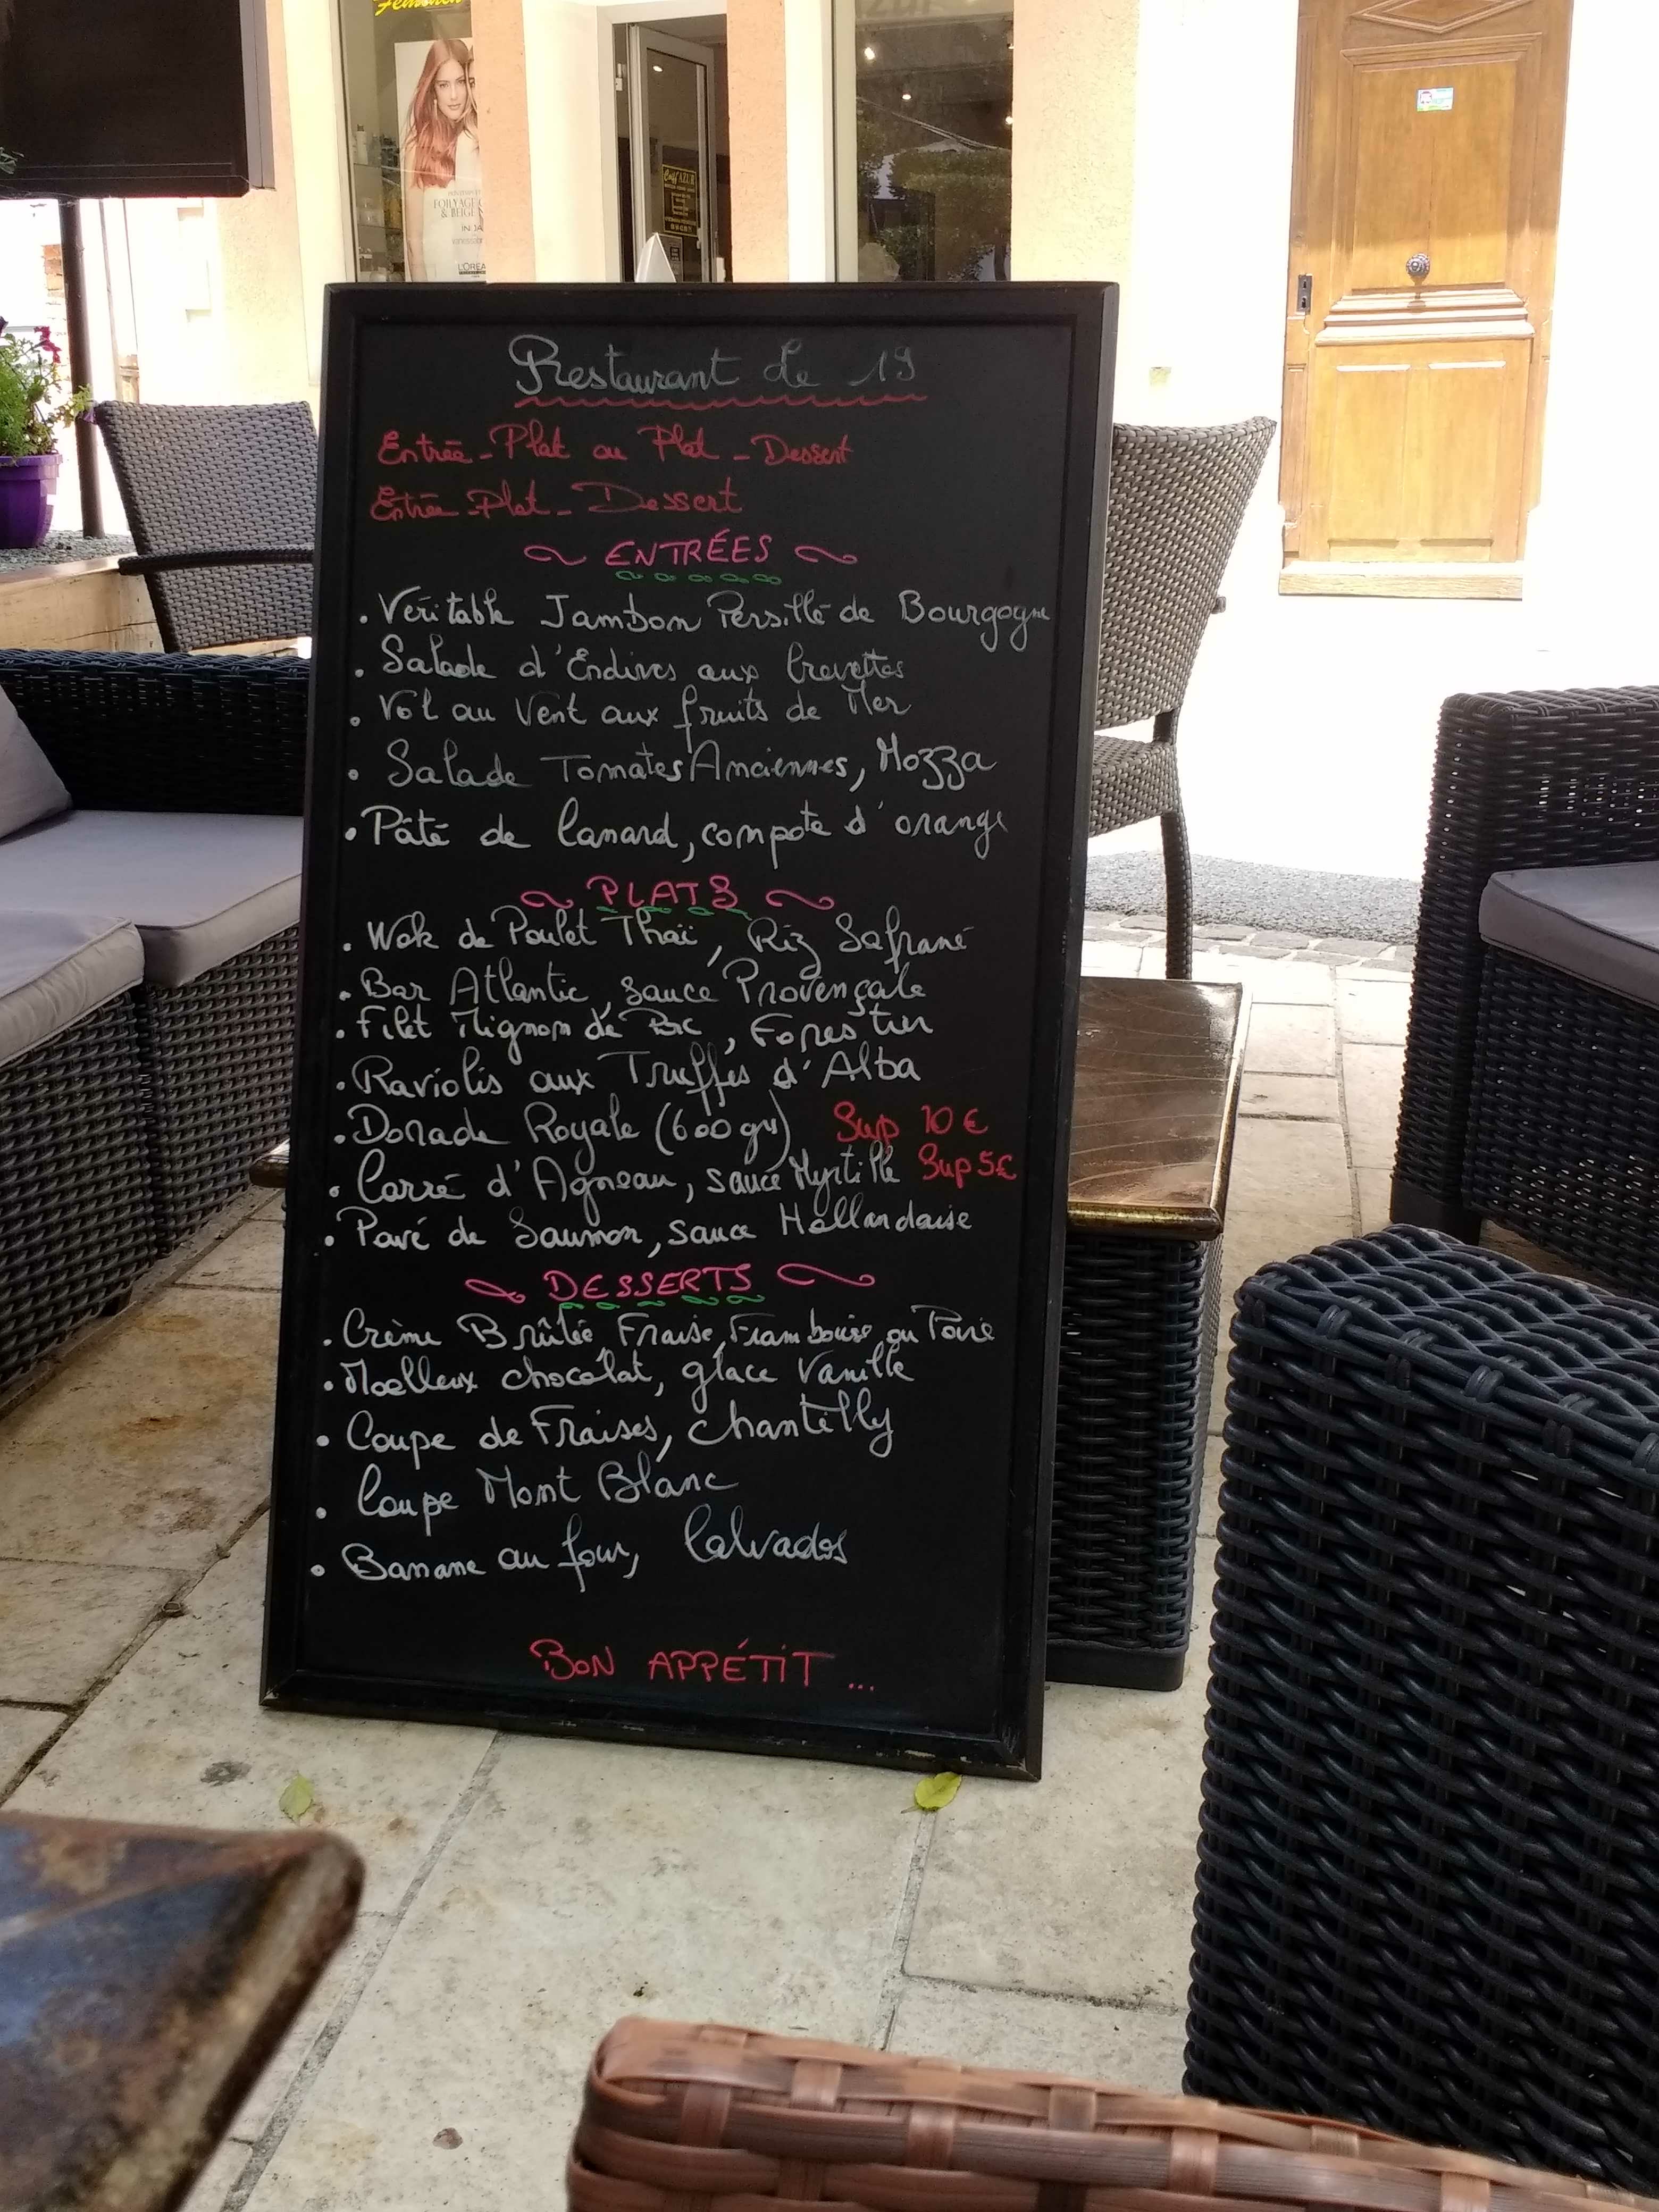 FOILYAGE
& BEIGE
L'OREA
Coiff'AZUR
Restaurant Le 19
Entrée - Plat ou Plat - Dessert
Entrée - Plat - Dessert
ENTRÉES
. Véritable Jambon Persillé de Bourgogne
. Salade d'Endives aux Crevettes
. Vol au Vent aux fruits de Mer
. Salade Tomates Anciennes, Mozza
. Pâté de Canard, compote d'orange
PLATS
. Wok de Poulet Thaï, Riz Safrané
. Bar Atlantic, sauce Provençale
. Filet Mignon de Porc, Forestier
. Raviolis aux Truffes d'Alba
. Dorade Royale (600gr) Sup 10€
. Carré d'Agneau, sauce Myrtille Sup 5€
. Pavé de Saumon, sauce Hollandaise
DESSERTS
. Crème Brûlée Fraise, Framboise ou Poire
. Moelleux chocolat, glace Vanille
. Coupe de Fraises, chantilly
. Coupe Mont Blanc
. Banane au four, Calvados
BON APPÉTIT ...